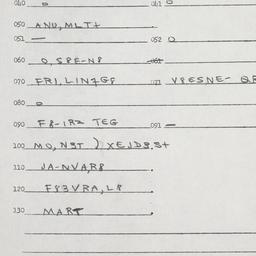 040 041
050 AND, MLT+
051 — 052 O
060 O, SPE-N8
070 FRI, LIN7G8 071 V8ESNE-
080 o
090 F8-1R2 TEG 091 —
100 MO, NST ) XEJD8,S+
110 JA-NVAR8 .
120 F83VRA, L8 .
130 MART .